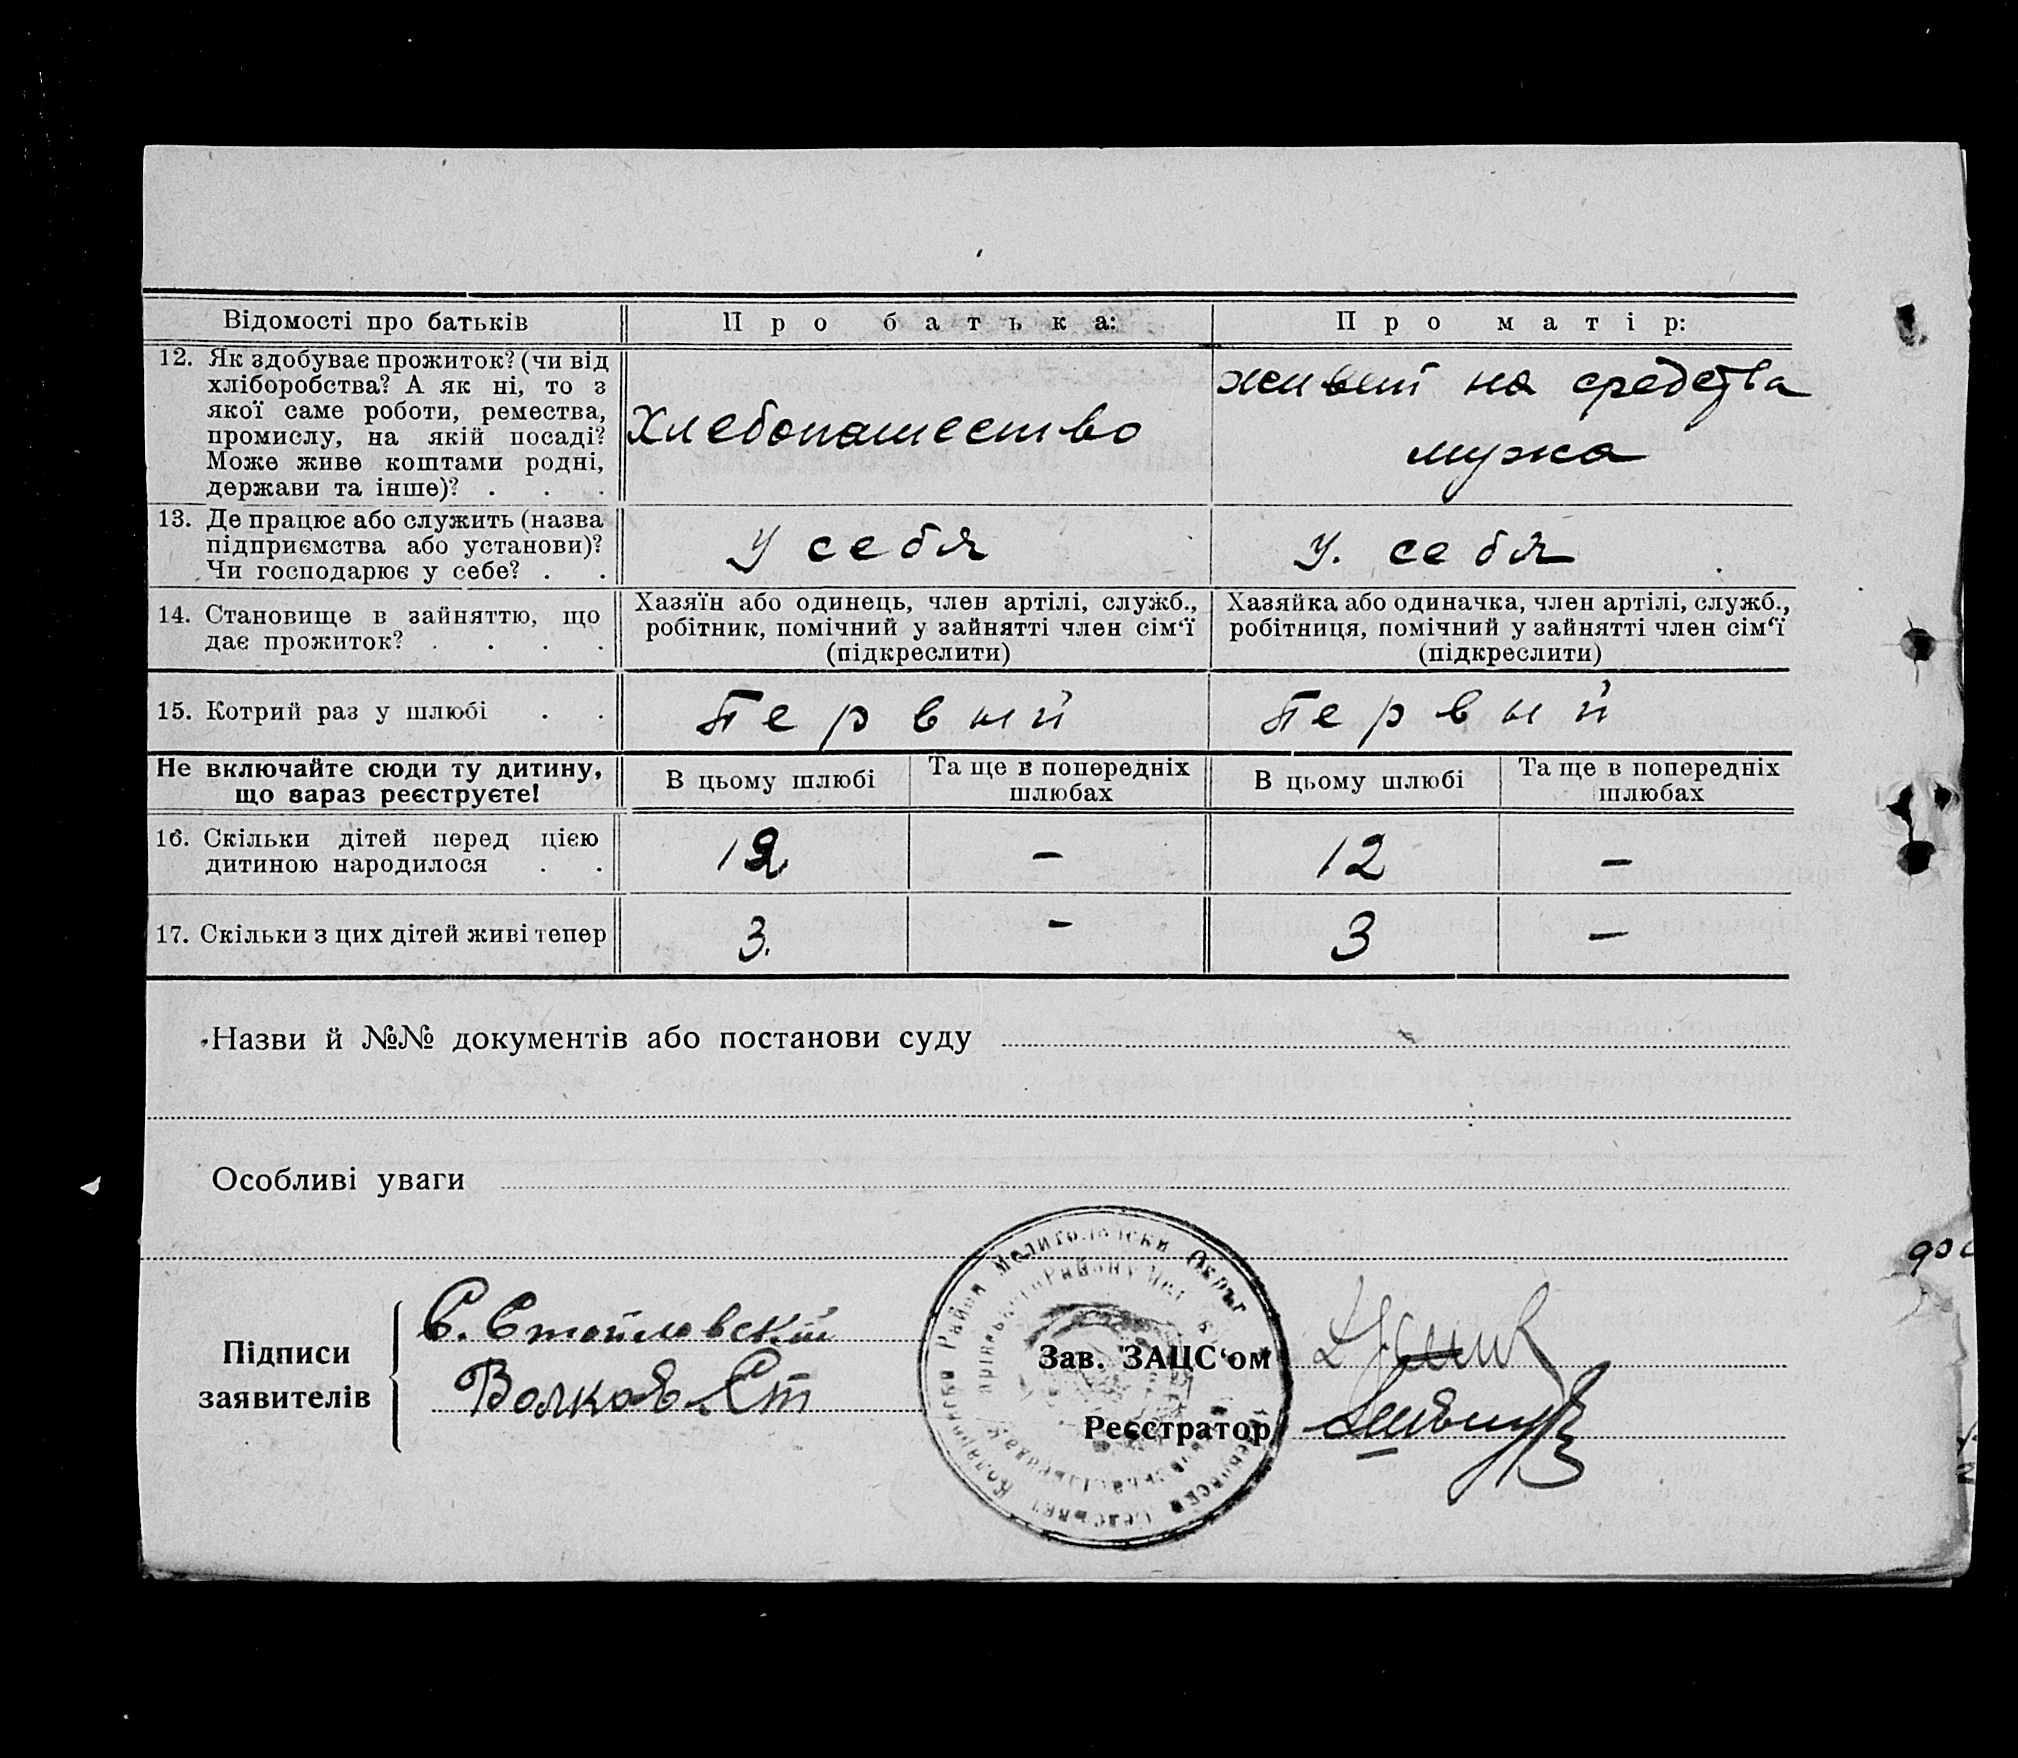 Відомості про батьків
Про батька:
Про матір:
12. Як здобуває прожиток? (чи від
хліборобства? А як ні, то з
якої саме роботи, ремества,
промислу, на якій посаді?
Може живе коштами родні,
держави та інше)? . . .
Хлебопашество
живет на средства
мужа
13. Де працює або служить (назва
підприємства або установи)?
Чи господарює у себе? . .
У себя
У. себя
14. Становище в зайняттю, що
дає прожиток? . . . .
Хазяїн або одинець, член артілі, служб.,
робітник, помічний у зайнятті член сім‘ї
(підкреслити)
Хазяйка або одиначка, член артілі, служб.,
робітниця, помічний у зайнятті член сім‘ї
(підкреслити)
15. Котрий раз у шлюбі . .
Первый
Первый
Не включайте сюди ту дитину,
що зараз реєструєте!
В цьому шлюбі
Та ще в попередніх
шлюбах
В цьому шлюбі
Та ще в попередніх
шлюбах
16. Скільки дітей перед цією
дитиною народилося . .
12
–
12
–
17. Скільки з цих дітей живі тепер
3.
–
3
–
Назви й №№ документів або постанови суду
Особливі уваги
Підписи
заявителів
С. Стойловский
Волков Ст
Зав. ЗАЦС‘ом
Реєстратор
Район Мелитополски Окръг